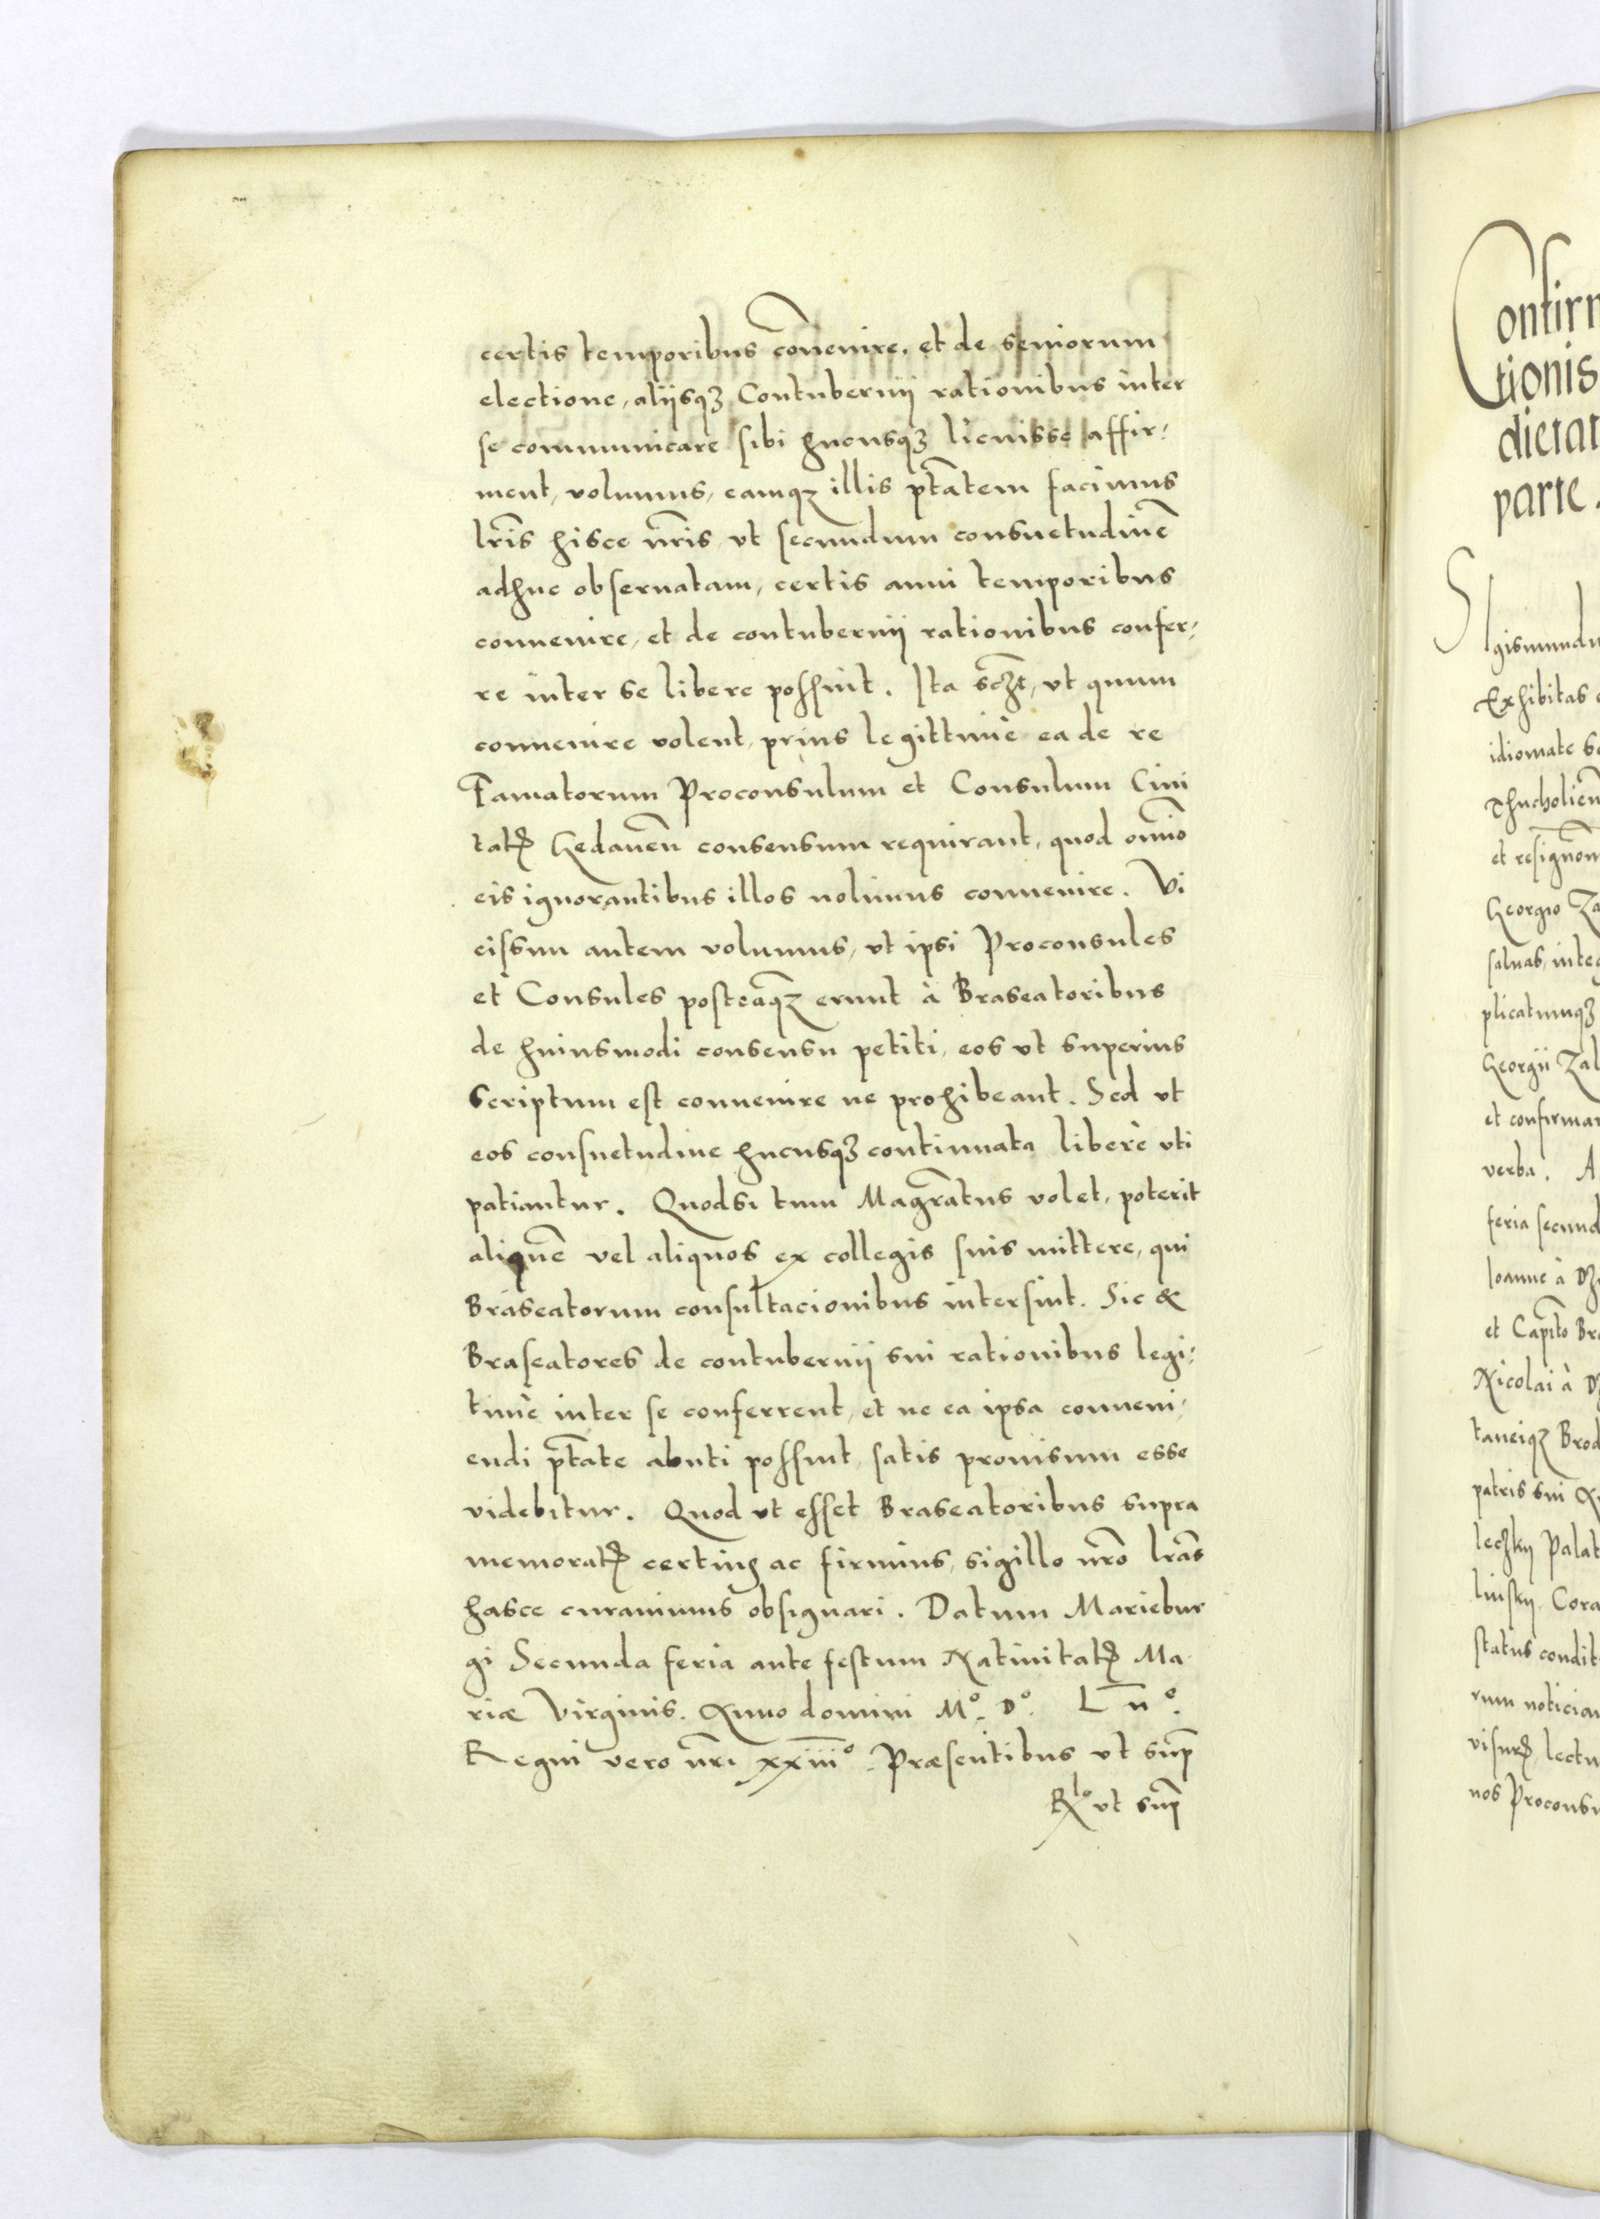 certis temporibus cōuenire, et de seniorum
electione, aliisqꝫ Contubernij rationibus inter
se communicare sibi hucusqꝫ licuisse affir⸗
ment, volumus, eamqꝫ illis ptātem facimus
lrīs hisce nrīs, vt secundum consuetudinē
adhuc obseruatam, certis anni temporibus
conuenire, et de contubernij rationibus confer⸗
re inter se libere possint. Ita sczt̄, vt quum
conuenire volent, prius legittimè ea de re
Famatorum Proconsulum et Consulum Ciui
tatꝭ Gedaneñ consensum requirant, quod om̄io
eis ignorantibus illos nolimus conuenire. Vi
cissim autem volumus, vt ipsi Proconsules
et Consules posteāqꝫ erunt à Braseatoribus
de huiusmodi consensu petiti, eos vt superius
scriptum est conuenire ne prohibeant. Sed vt
eos consuetudine hucusqꝫ continuata liberè vti
patiantur. Quodsi tum Magrātus volet, poterit
aliquē vel aliquos ex collegis suis mittere, qui
Braseatorum consultacionibus intersint. Sic &
Braseatores de contubernij sui rationibus legi⸗
timè inter se conferrent, et ne ea ipsa conueni⸗
endi ptāte abuti possint, satis prouisum esse
videbitur. Quod vt esset Braseatoribus supra
memoratꝭ certius ac firmius, sigillo nrō lrās
hasce curauimus obsignari. Datum Mariebur
gi Secunda feria ante festum Natiuitatꝭ Ma
riæ Virginis. Anno domini Mº. Dº. L īiº.
Regni vero nrī xxiiiº. Præsentibus vt sup̄
Rlo vt sup̄
Confirm
tionis
dietat
parte.
Sigismundu
Exhibitas
idiomate
Thucholień
et resignōm
Georgio Za
saluas, integ
plicatumqꝫ
Georgii Zal
et confirmar
verba. A
feria secund
Ioanne à Dz
et Capīto Br
Nicolai à D
taneiqꝫ Brod
patris sui
leczkij Palat
linskij, Cora
status condit
rum noticiam
visurꝭ, lectu
nos Proconsu